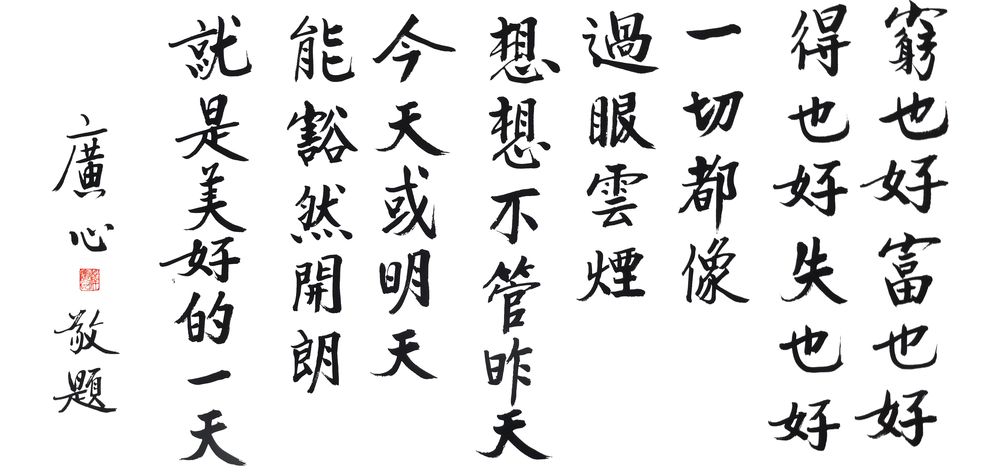 窮也好富也好
得也好失也好
一切都像
過眼雲煙
想想不管昨天
今天或明天
能豁然開朗
就是美好的一天
廣心
敬題